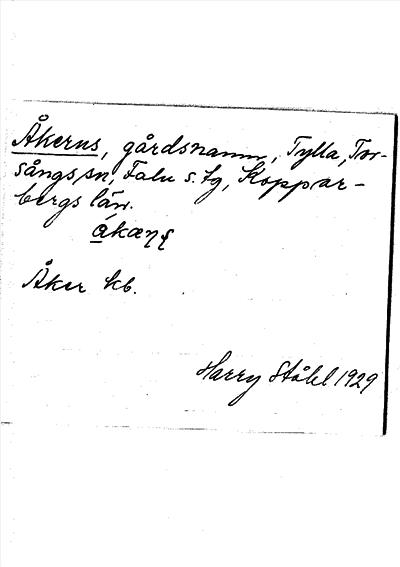 Åkerns, gårdsnamn, Tylla, Tor-
sångs sn, Falu s. tg, Koppar-
bergs län.
Åker kb.
Harry Ståhl 1929